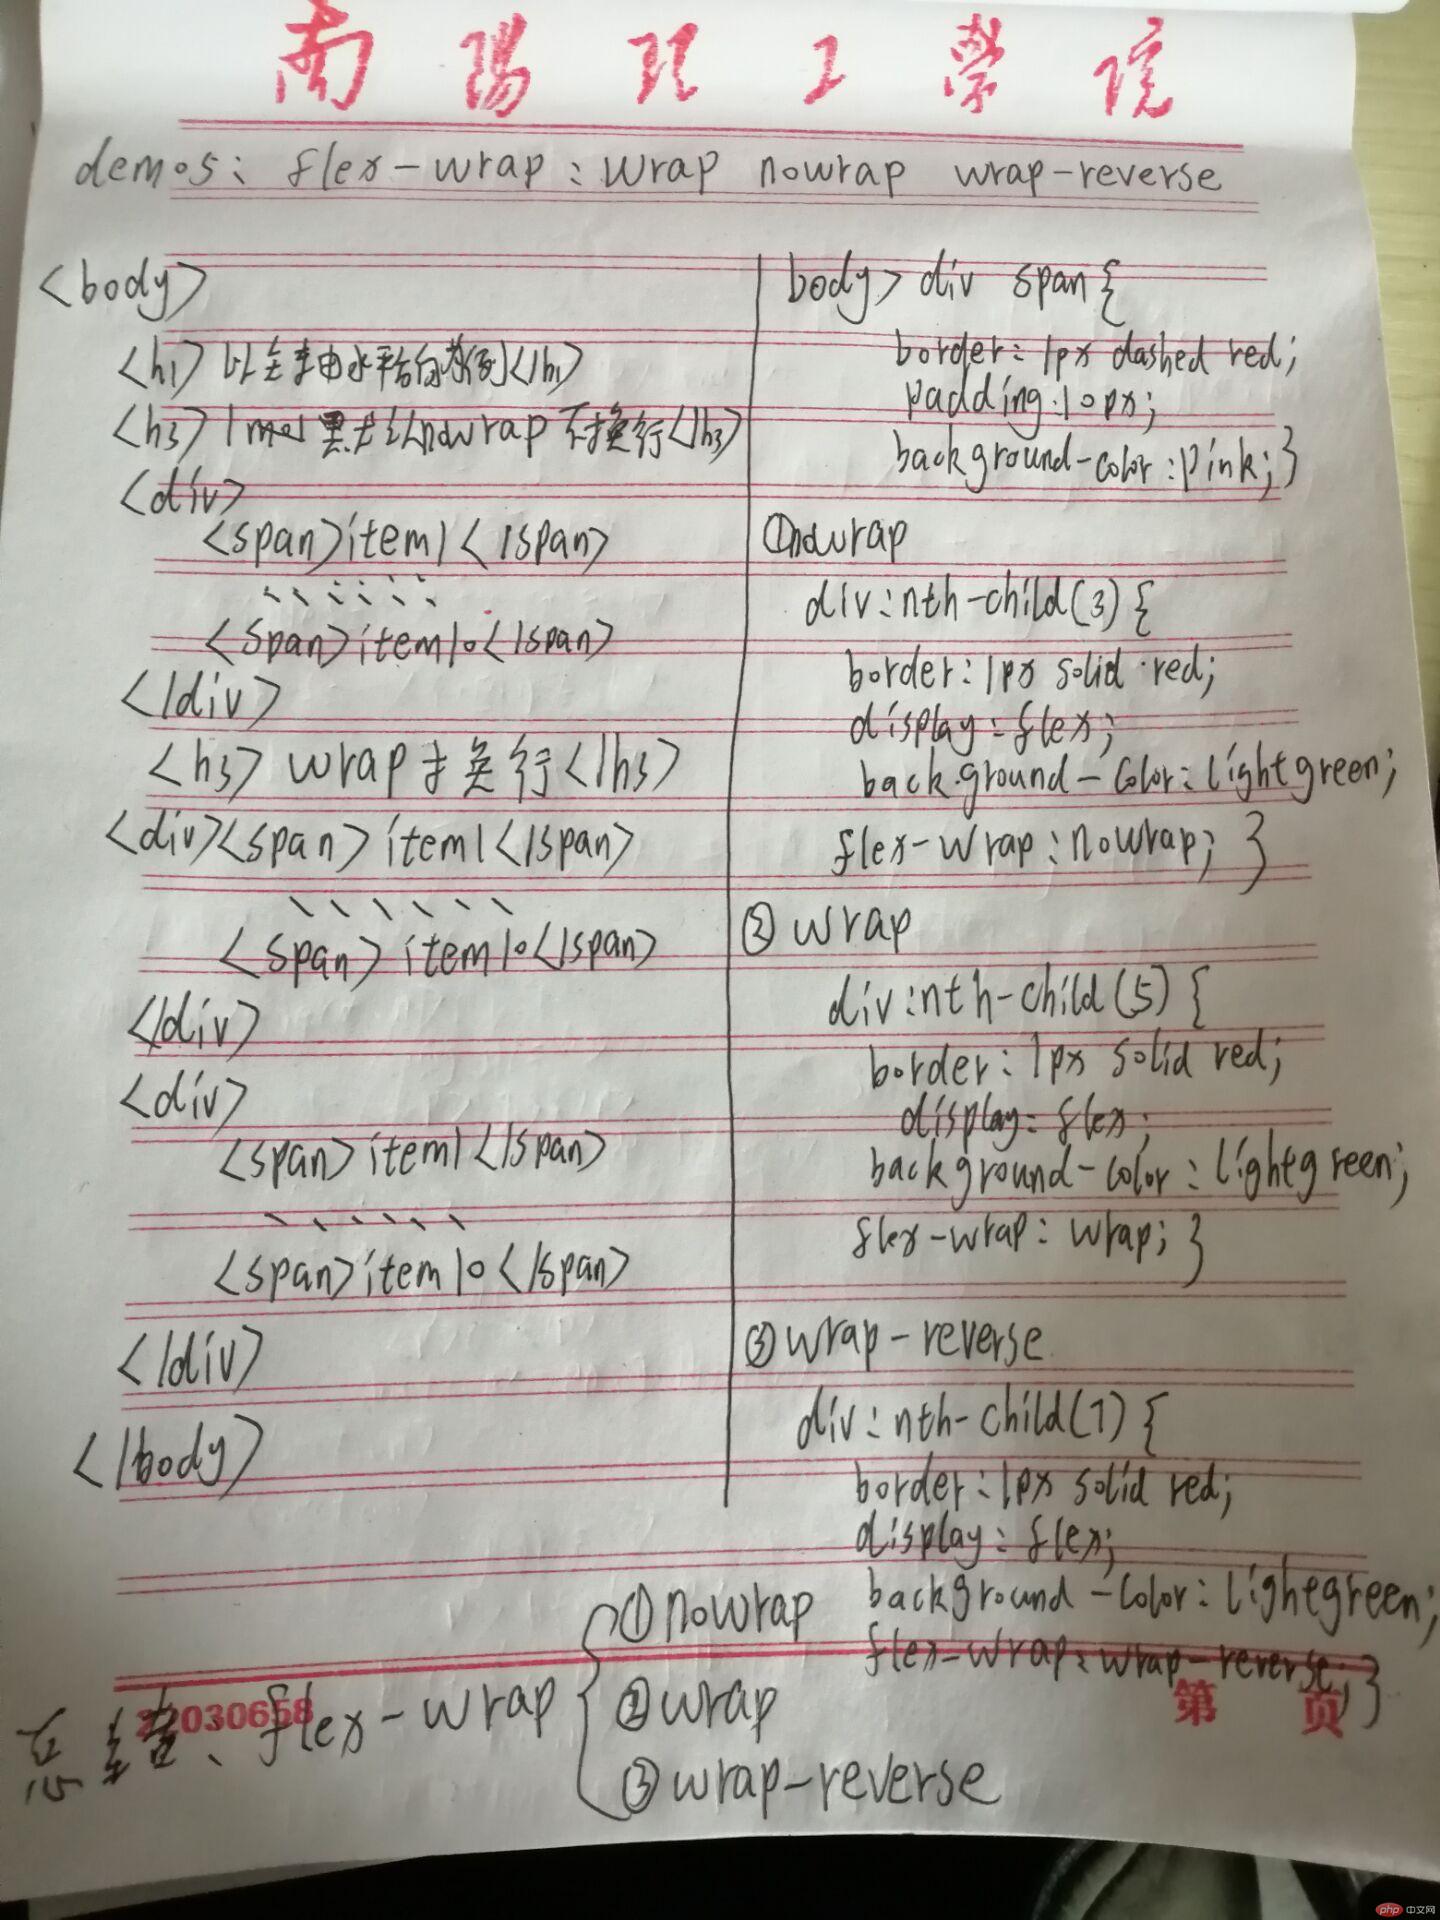 南陽理工學院
demo5: flex-wrap: wrap nowrap wrap-reverse
<body>
<h1>以主轴由水平方向为例</h1>
<h3>1 默认nowrap不换行</h3>
<div>
<span>item1</span>
、、、、、、
<span>item10</span>
</div>
<h3>wrap换行</h3>
<div><span>item1</span>
、、、、、、
<span>item10</span>
</div>
<div>
<span>item1</span>
、、、、、、
<span>item10</span>
</div>
</body>
body> div span{
border: 1px dashed red;
padding:10px;
background-color:pink;}
①nowrap
div:nth-child(3){
border: 1px solid red;
display: flex;
background-color: lightgreen;
flex-wrap: nowrap; }
② wrap
div:nth-child(5){
border: 1px solid red;
display: flex;
background-color: lightgreen;
flex-wrap: wrap; }
③ wrap-reverse
div:nth-child(7){
border: 1px solid red;
display: flex;
background-color: lightgreen;
flex-wrap: wrap-reverse; }
22030658
第 页
总结、flex-wrap
①nowrap
②wrap
③wrap-reverse
php 中文网